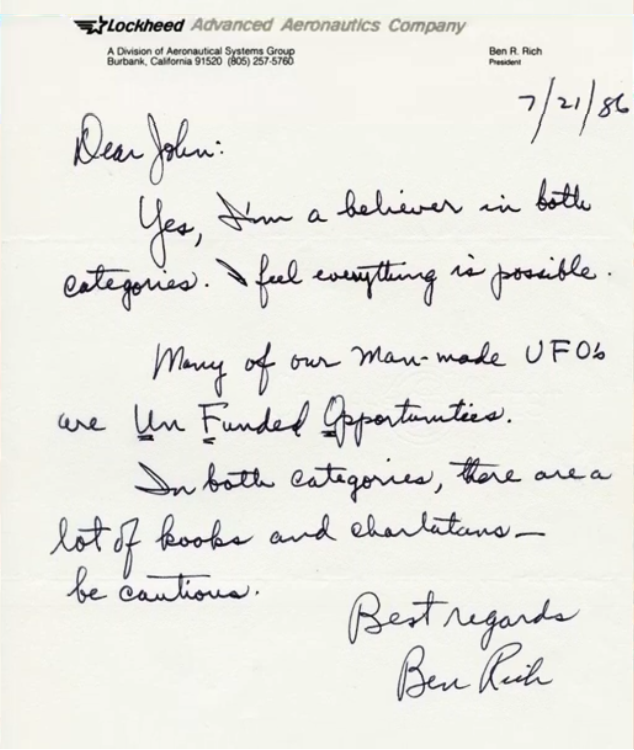 Lockheed Advanced Aeronautics Company
A Division of Aeronautical Systems Group
Burbank, California 91520 (805) 257-5760
Ben R. Rich
President
7/21/86
Dear John:
Yes, I'm a believer in both
categories. I feel everything is possible.
Many of our man-made UFO's
are Un Funded Opportunities.
In both categories, there are a
lot of kooks and charlatans —
be cautious.
Best regards
Ben Rich